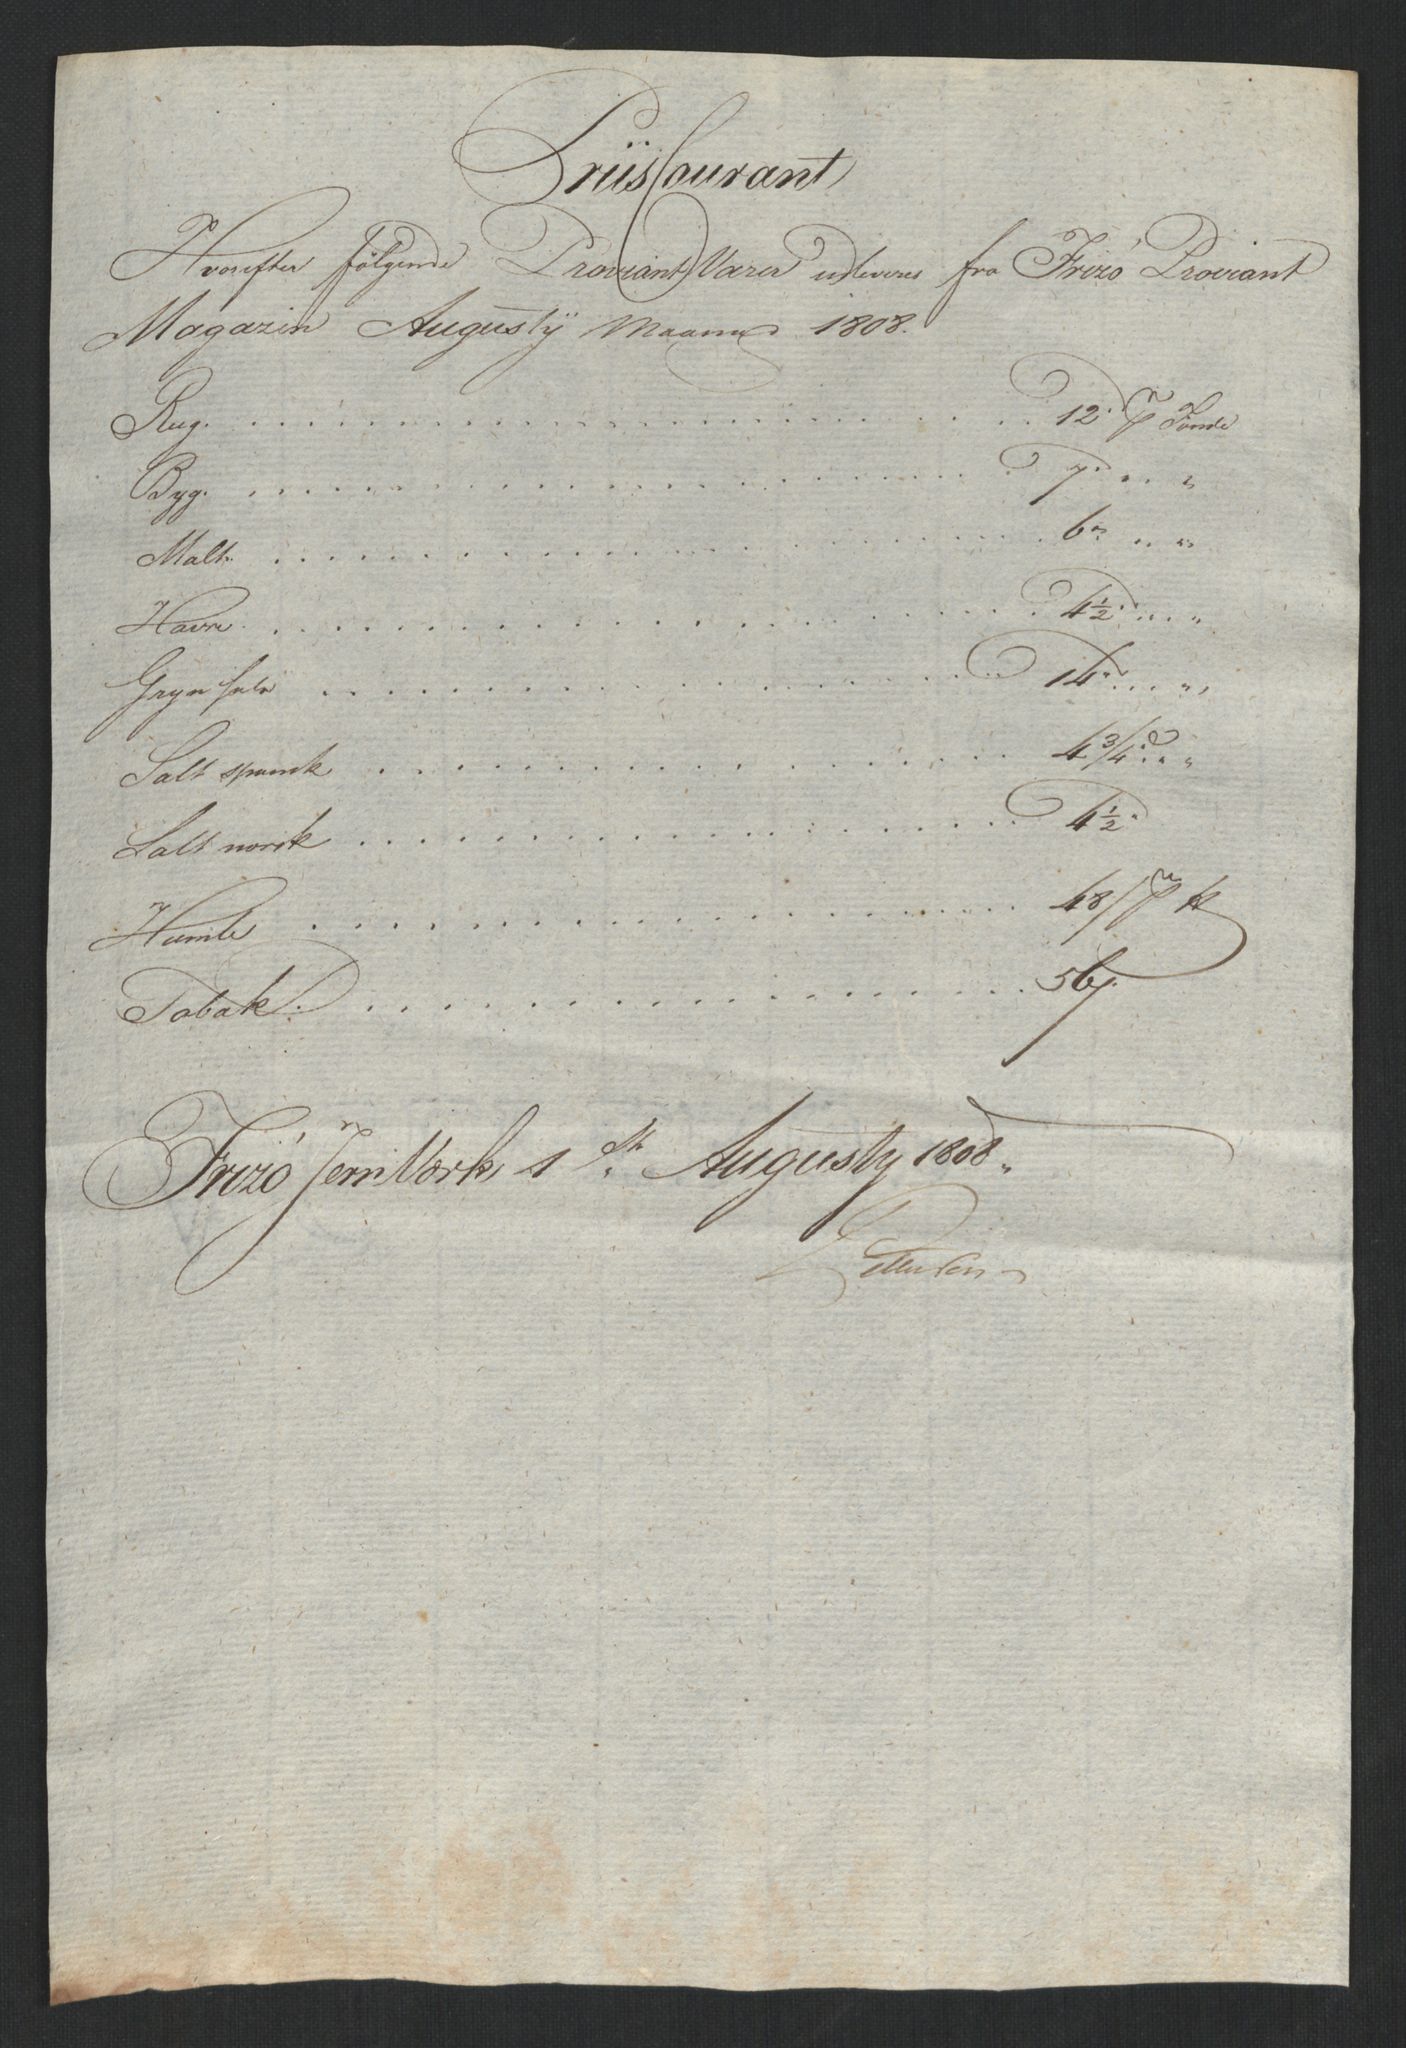 PriisCourant
Hvorefter følgende Proviant Varer udleveres fra Frizó Proviant
Magazin Augustÿ Maaned 1808.
Rug. . . . 12. pr Tønde
Byg. . . . 7. " "
Malt. . . . 6. " "
Havre. . . . 4½ " "
Gryn hele . . . 14. " "
Salt spansk . . . 4 3/4 " "
Salt norsk . . . 4½
Humle . . . 48/ pr ℔
Tobak. . . . 56/.
Frizó JernVærk 1ste Augusty 1808.